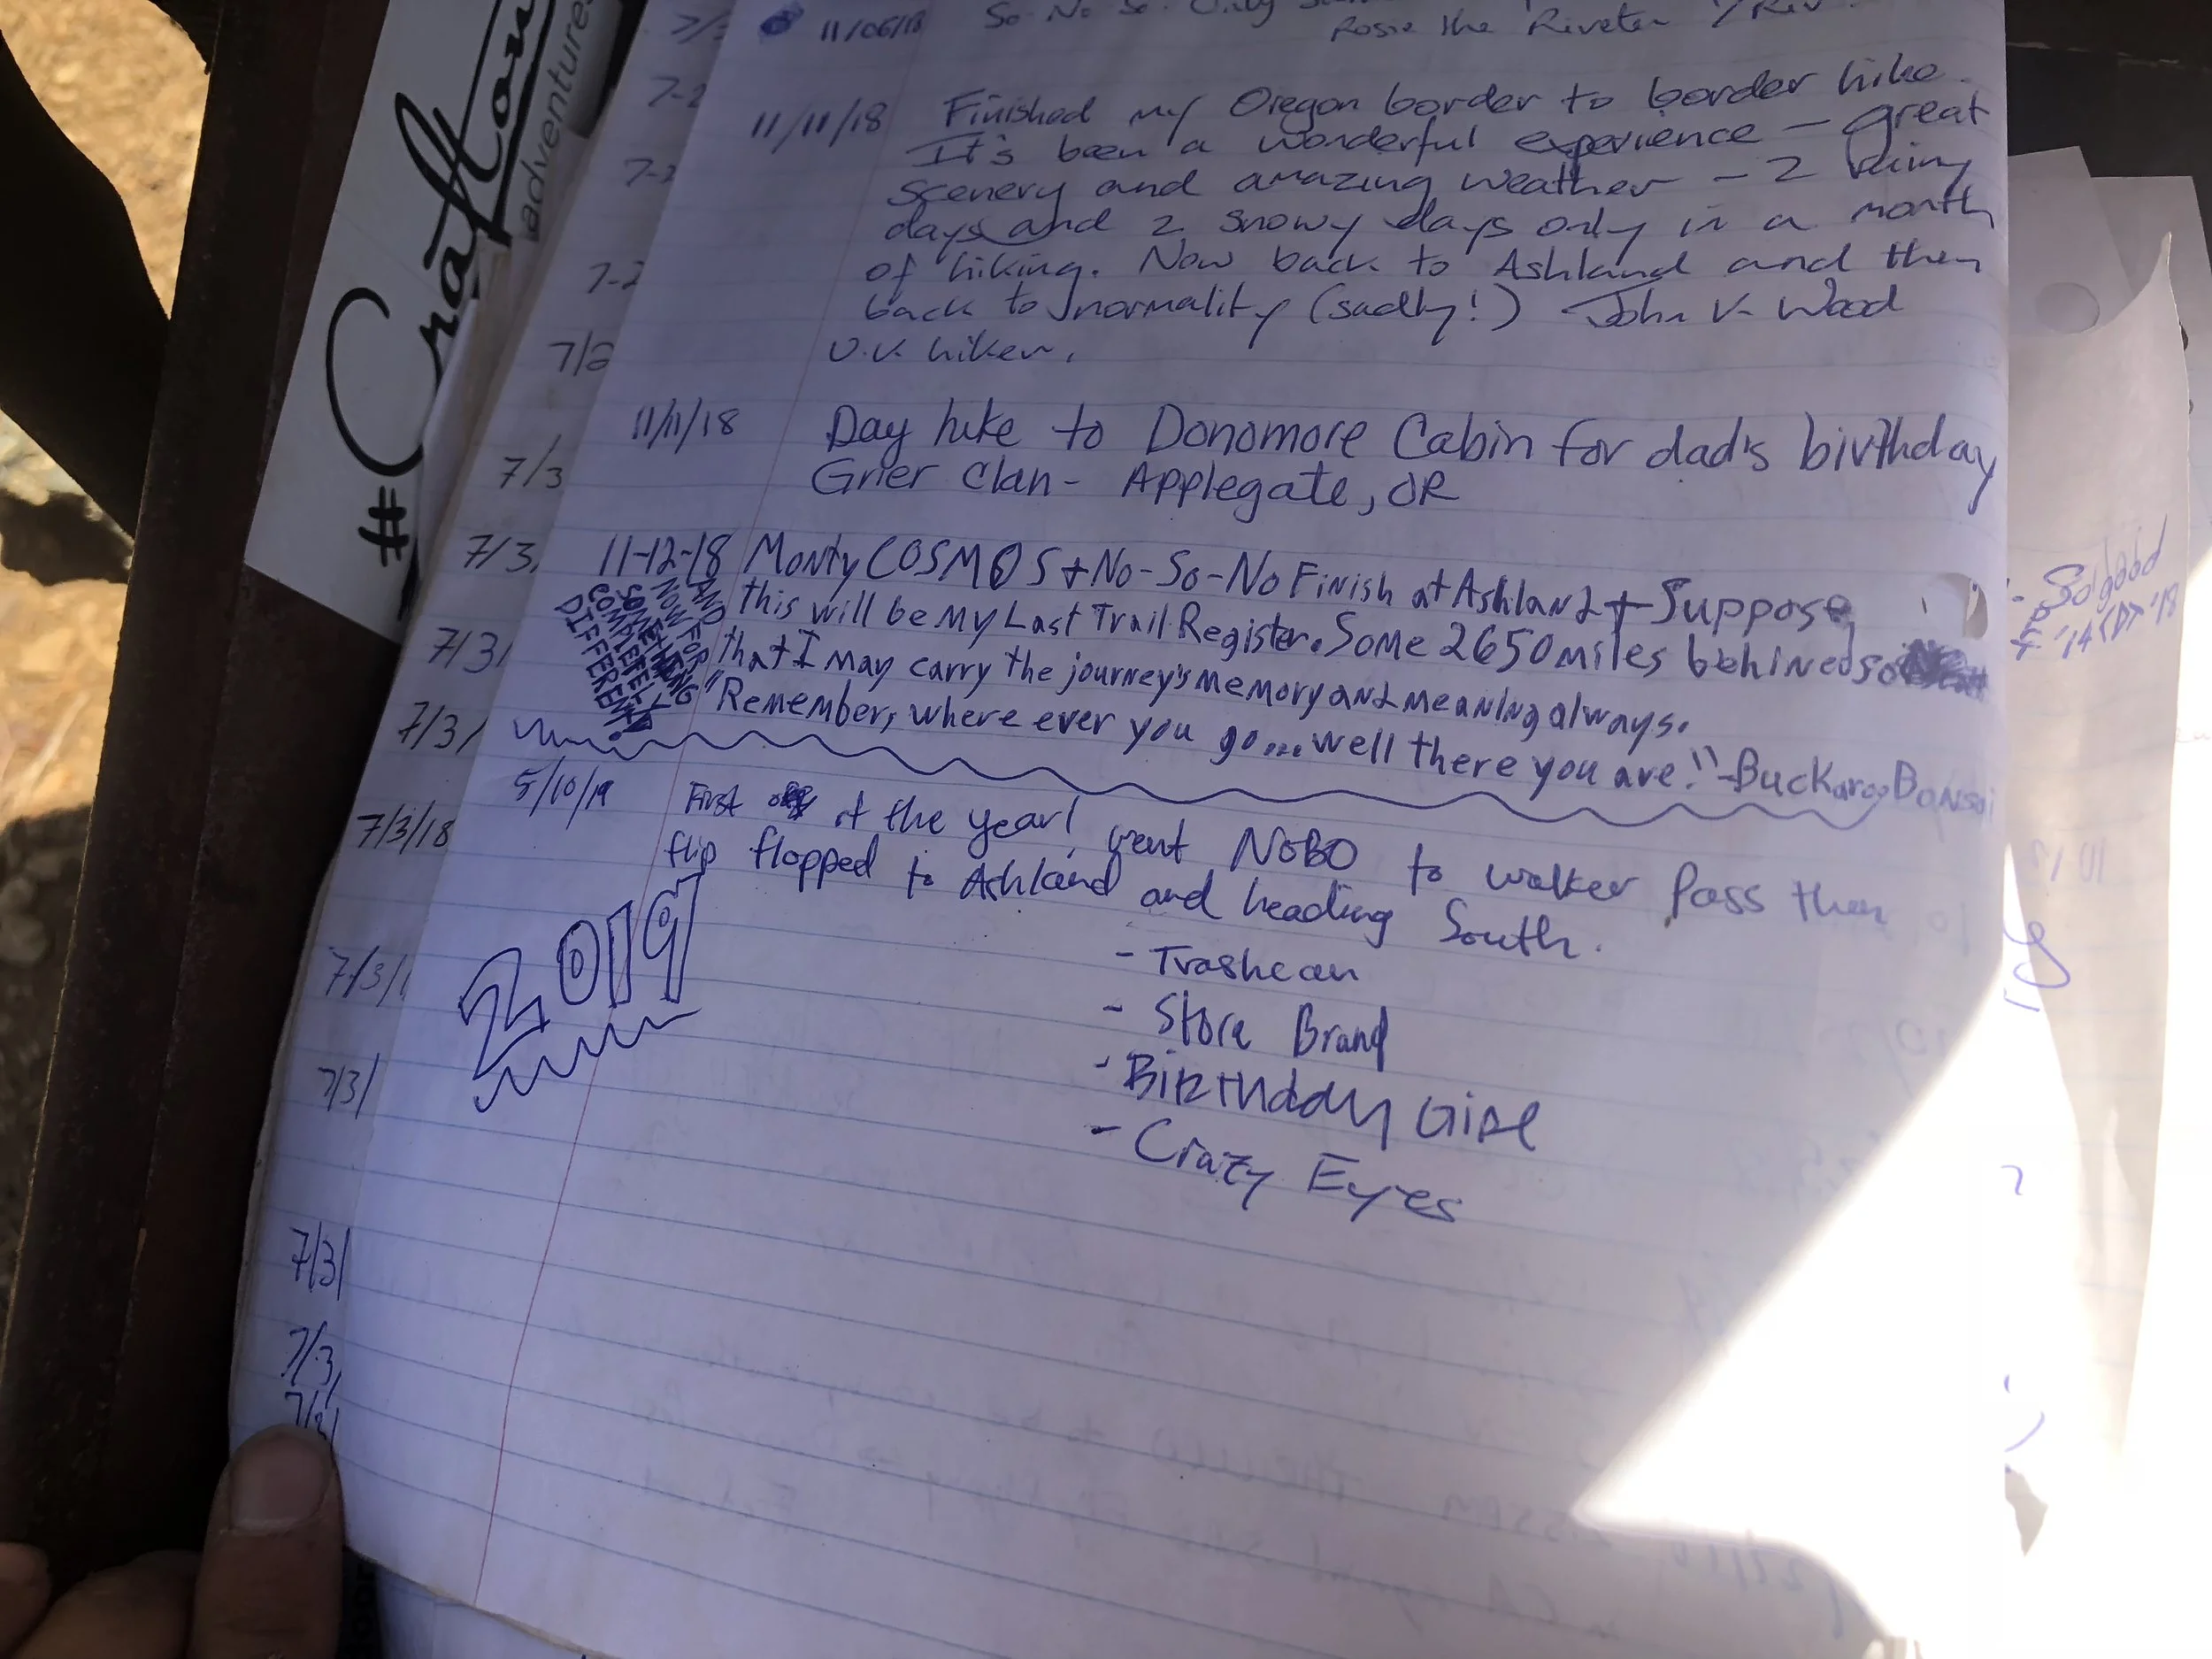 11/06/18 So-No So. Only
Rosie the Riveter
11/11/18 Finished my Oregon border to border hike.
It's been a wonderful experience - great
scenery and amazing weather - 2 rainy
days and 2 snowy days only in a month
of hiking. Now back to Ashland and then
back to normality (sadly!) John V. Wood
U.K. hiker.
11/11/18 Day hike to Donomore Cabin for dad's birthday
Grier Clan - Applegate, OR
11-12-18 Monty COSMOS + No-So-No Finish at Ashland + Suppose
this will be My Last Trail Register. Some 2650 miles behined so
that I may carry the journey's memory and meaning always.
"Remember, where ever you go... well there you are!" - Buckaroo Bonsai
AND
NOW FOR
SOMETHING
COMPLETELY
DIFFERENT!
5/10/19 First of the year! went NOBO to walker Pass then
flip flopped to Ashland and heading South.
2019
- Trashcan
- Store Brand
- Birthday Girl
- Crazy Eyes
#Crafton
adventures
7-2
7-2
7-2
7/3
7/3
7/3/
7/3/
7/3/18
7/3/1
7/3/
7/3/
7/3/
7/3/
- Solgood
'14 CDT '18